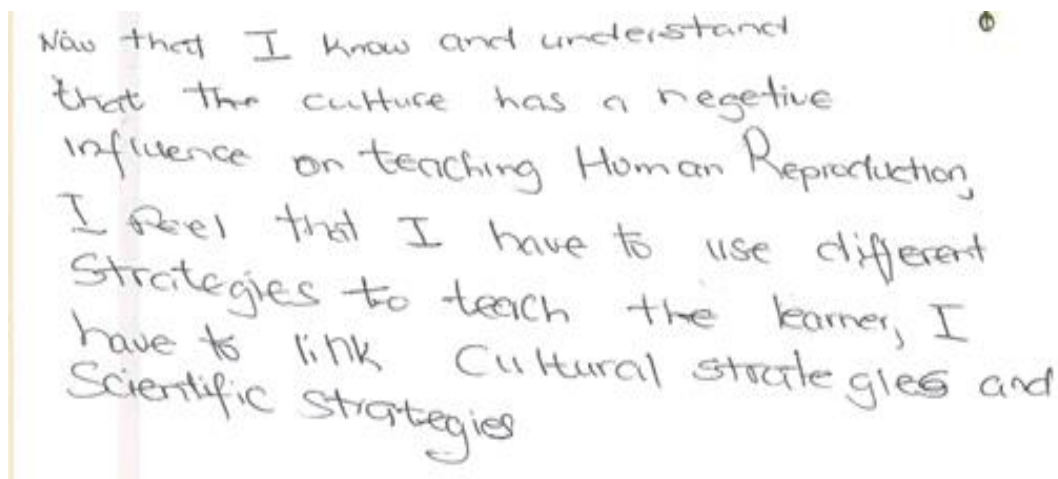 Now that I know and understand
that the culture has a negetive
influence on teaching Human Reproduction,
I feel that I have to use different
Strategies to teach the learner, I
have to link Cultural strategies and
Scientific Strategies